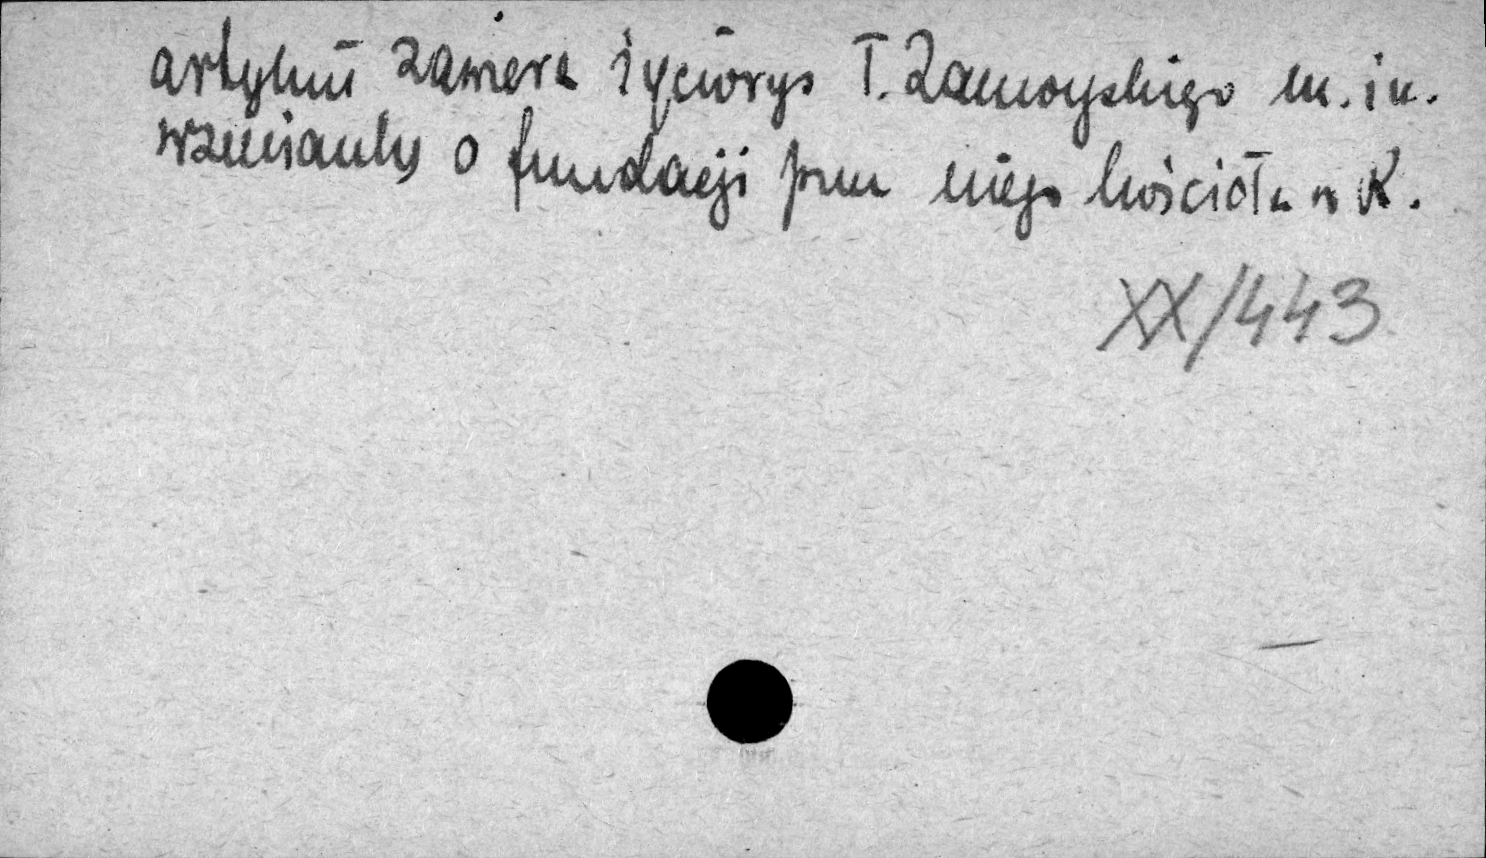 artykuł zawiera życiorys T. Zamoyskiego m. in.
wzmiankę o fundacji przez niego kościoła w K.
XX/443